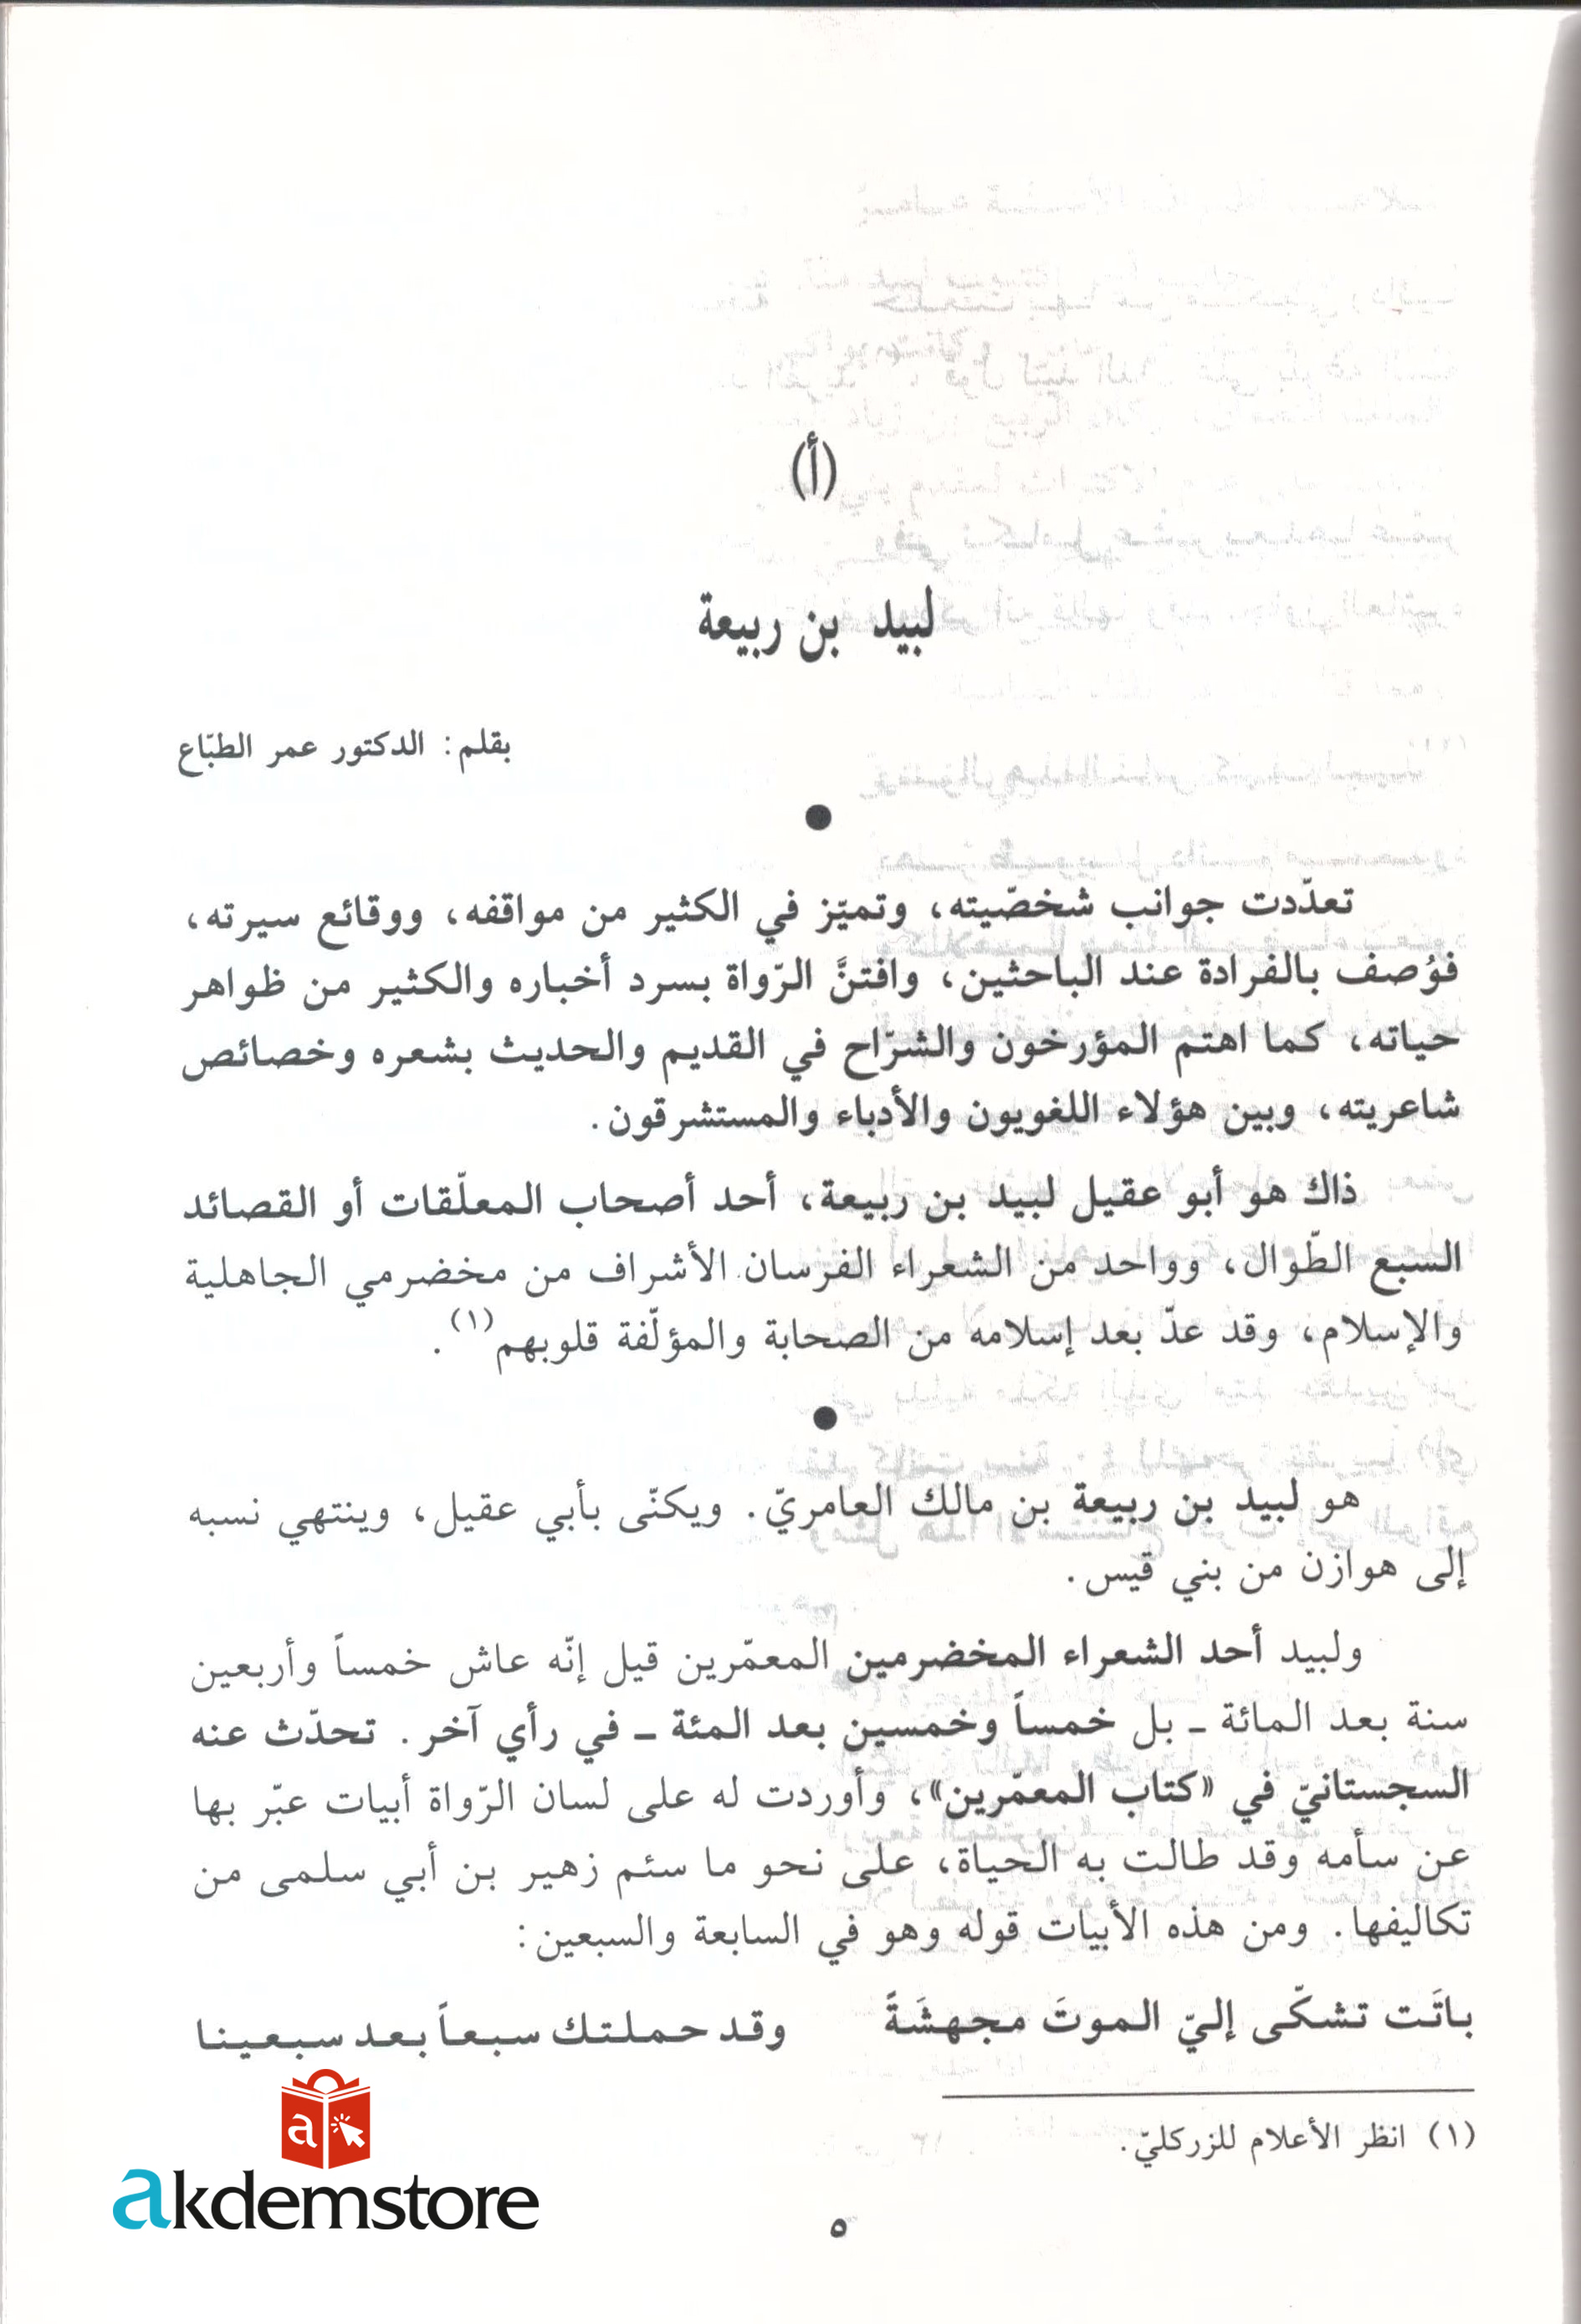 (أ)
لبيد بن ربيعة
بقلم: الدكتور عمر الطبّاع
تعدّدت جوانب شخصّيته، وتميّز في الكثير من مواقفه، ووقائع سيرته،
فوُصف بالفرادة عند الباحثين، وافتنَّ الرّواة بسرد أخباره والكثير من ظواهر
حياته، كما اهتم المؤرخون والشرّاح في القديم والحديث بشعره وخصائص
شاعريته، وبين هؤلاء اللغويون والأدباء والمستشرقون.
ذاك هو أبو عقيل لبيد بن ربيعة، أحد أصحاب المعلّقات أو القصائد
السبع الطّوال، وواحد من الشعراء الفرسان الأشراف من مخضرمي الجاهلية
والإسلام، وقد عدّ بعد إسلامه من الصحابة والمؤلّفة قلوبهم(١).
هو لبيد بن ربيعة بن مالك العامريّ. ويكنّى بأبي عقيل، وينتهي نسبه
إلى هوازن من بني قيس.
ولبيد أحد الشعراء المخضرمين المعمّرين قيل إنّه عاش خمساً وأربعين
سنة بعد المائة ـ بل خمساً وخمسين بعد المئة ـ في رأي آخر. تحدّث عنه
السجستانيّ في «كتاب المعمّرين»، وأوردت له على لسان الرّواة أبيات عبّر بها
عن سأمه وقد طالت به الحياة، على نحو ما سئم زهير بن أبي سلمى من
تكاليفها. ومن هذه الأبيات قوله وهو في السابعة والسبعين:
باتَت تشكّى إليّ الموتَ مجهشَةً وقد حملتك سبعاً بعد سبعينا
(١) انظر الأعلام للزركليّ.
a
akdemstore
٥